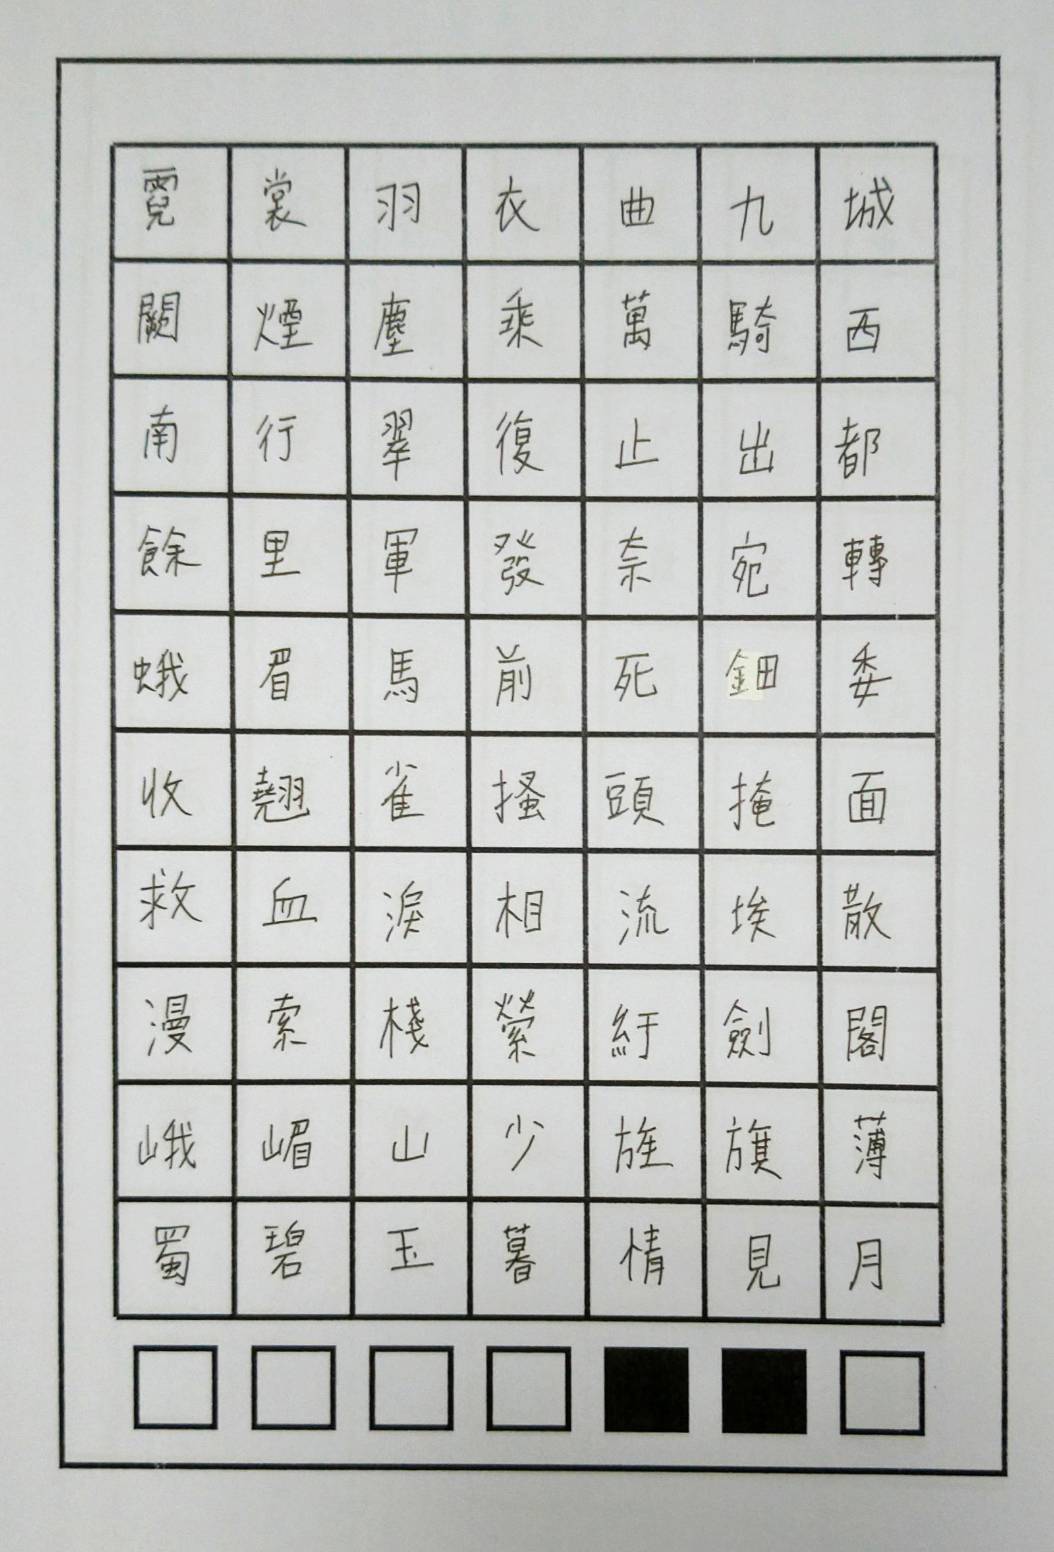 霓裳羽衣曲九城
闕煙塵乘萬騎西
南行翠復止出都
餘里軍發奈宛轉
蛾眉馬前死鈿委
收翹雀搔頭掩面
救血淚相流埃散
漫索棧縈紆劍閣
峨嵋山少旌旗薄
蜀碧玉暮情見月